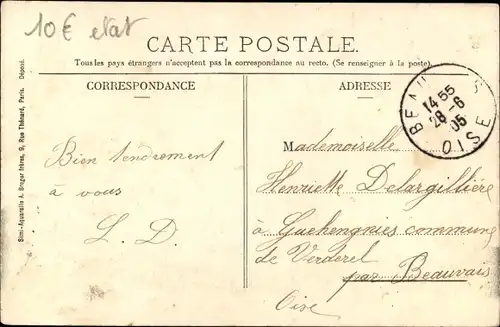 10€ état
CARTE POSTALE.
Tous les pays étrangers n'acceptent pas la correspondance au recto. (Se renseigner à la poste).
CORRESPONDANCE
ADRESSE
BEAU S
14 55
28 - 6
05
OISE
Bien tendrement
à vous
L. D.
Mademoiselle
Henriette Delargillière
à Guehengnies commune
de Verderel
par Beauvais
Oise
Simi-Aquarelle A. Breger frères, 9, Rue Thénard, Paris. Déposé.